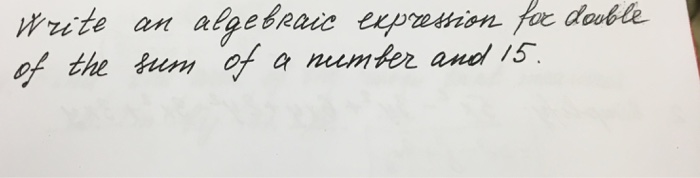 Write an algebraic expression for double
of the sum of a number and 15.